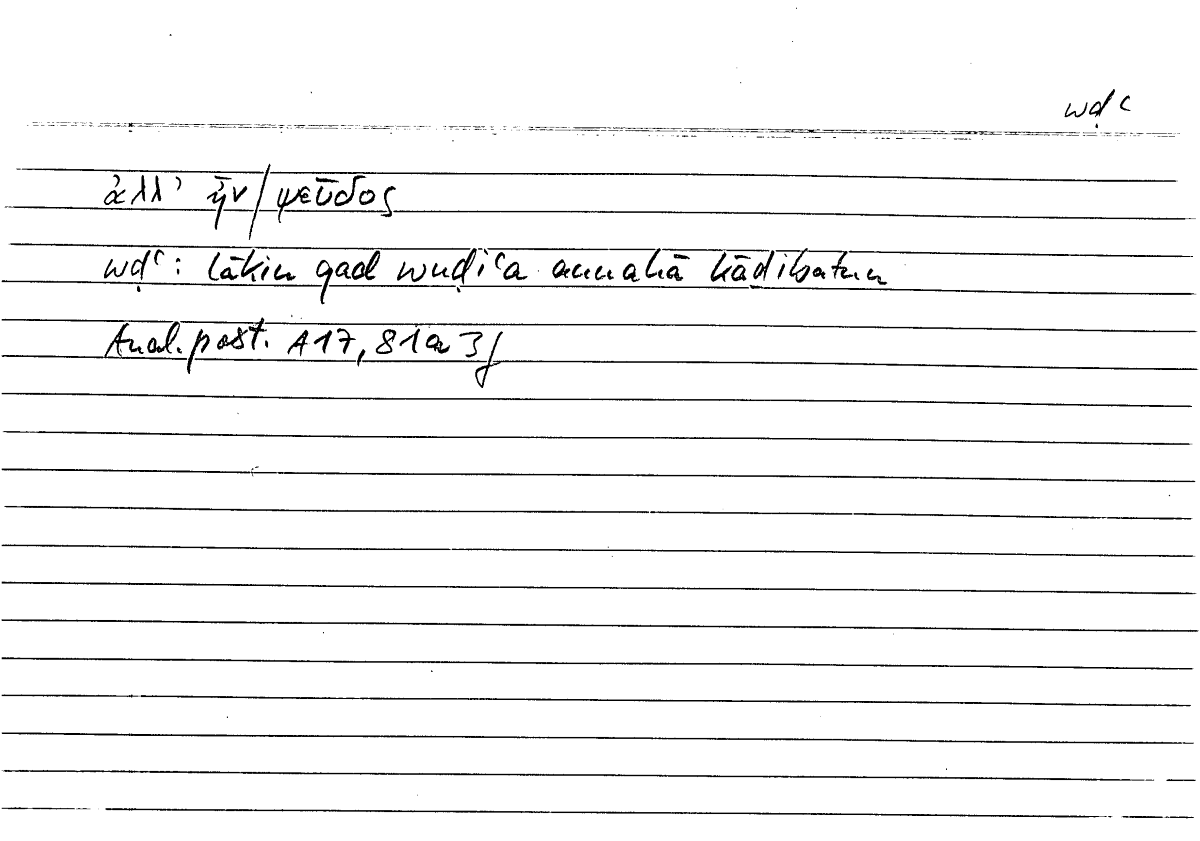 wḍʿ
ἀλλ' ἦν/ψεῦδος
wḍʿ: lākin qad wuḍiʿa annahā kāḏibatun
Anal. post. A17, 81a 3f